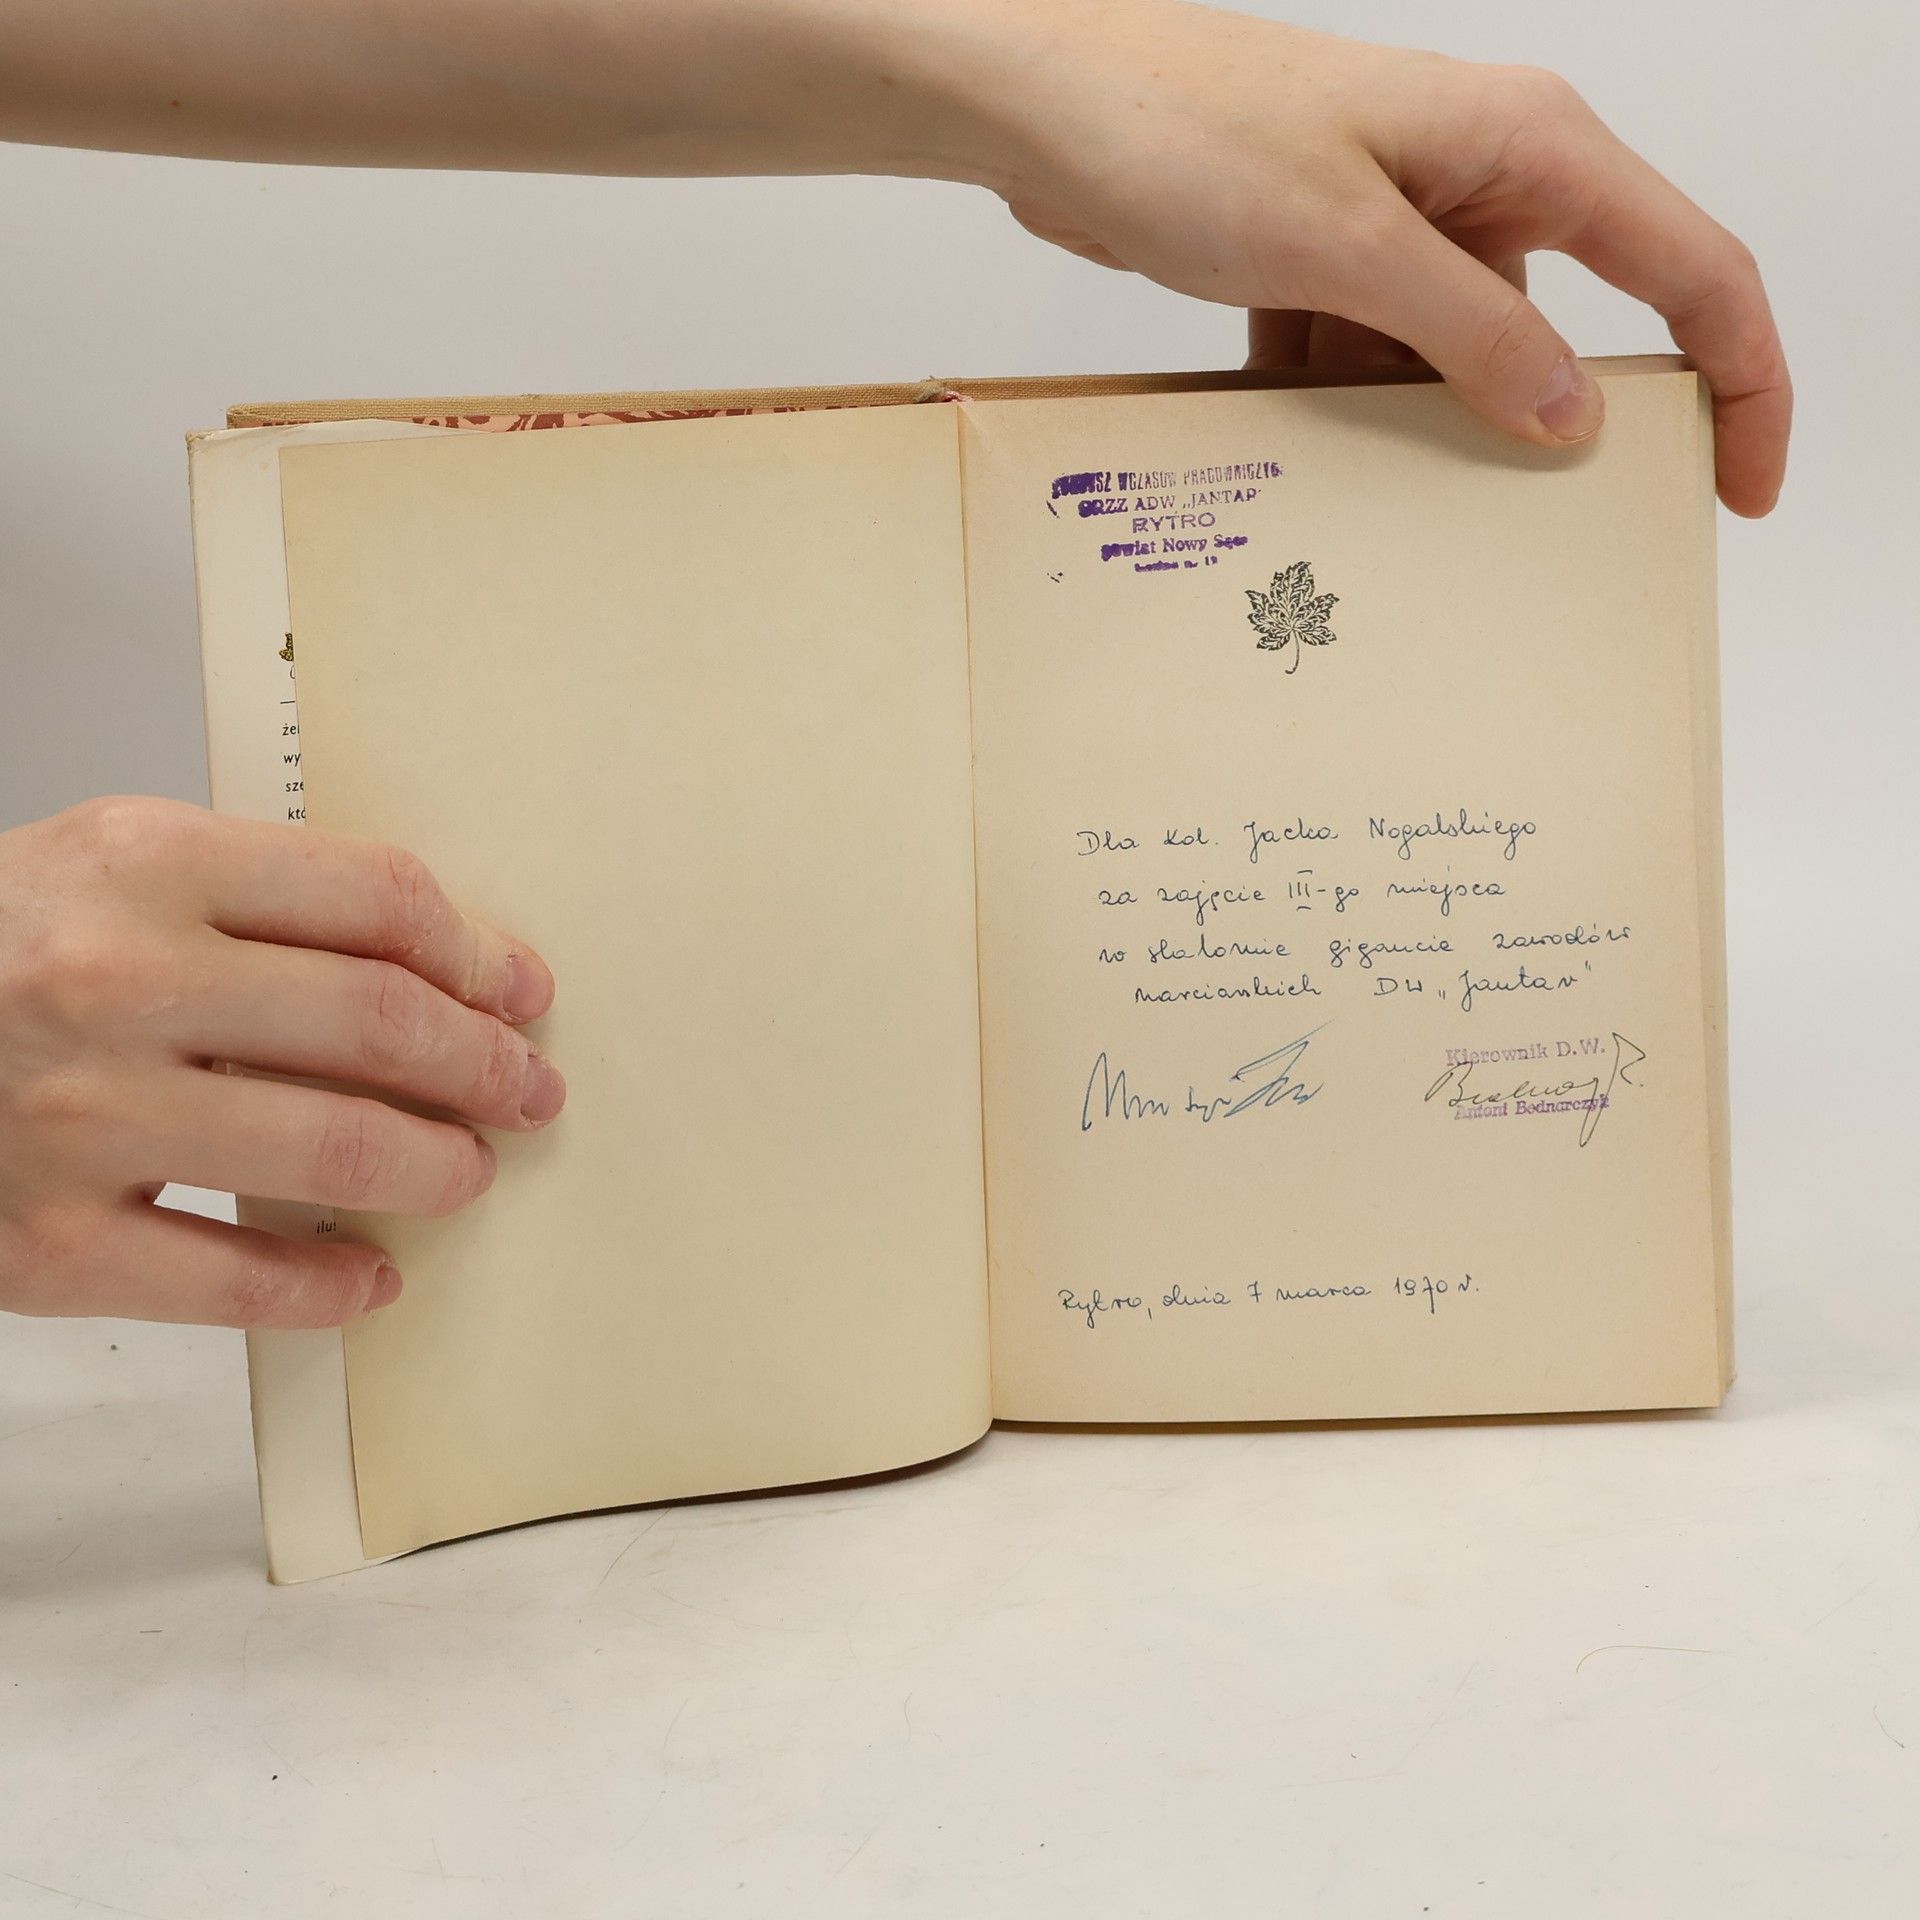 że
wy
sze
któ
ilus
WCZASÓW PRACOWNICZYC
ORZZ ADW „JANTAR"
RYTRO
powiat Nowy Sącz
Dla Kol. Jacka Nogalskiego
za zajęcie III-go miejsca
w slalomie gigancie zawodów
narciarskich DW „Jantar"
Kierownik D.W.
Antoni Bednarczyk
Rytro, dnia 7 marca 1970 r.